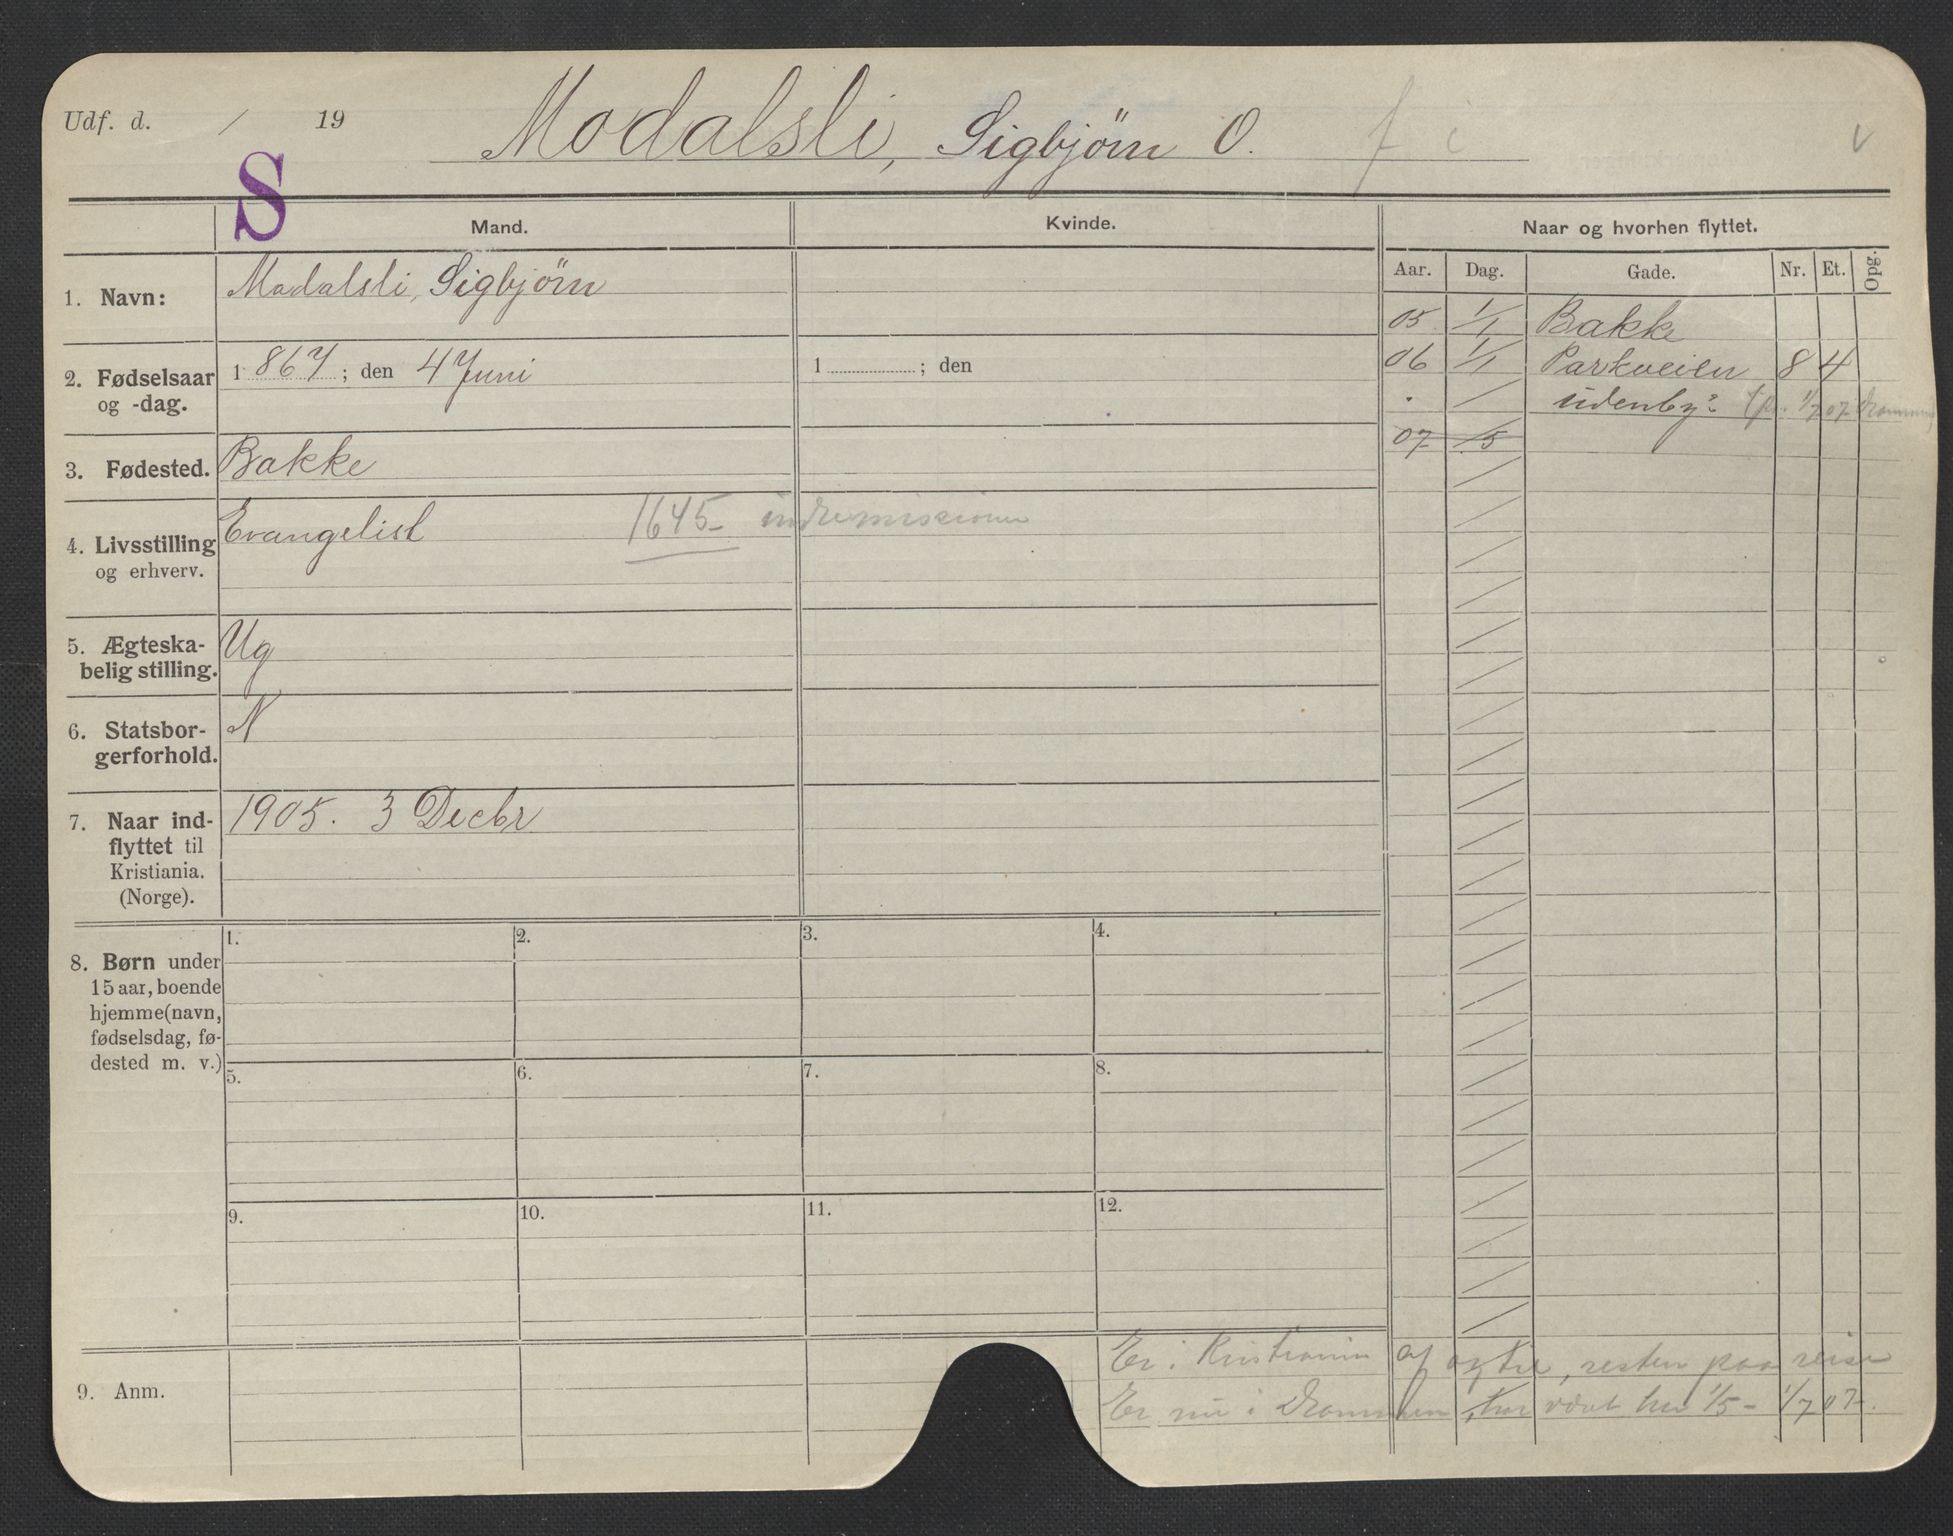 Udf. d. / 19 Modalsli, Sigbjörn O. f i v
S
Mand. Kvinde. Naar og hvorhen flyttet.
Aar. Dag. Gade. Nr. Et. Opg.
1. Navn: Modalsli, Sigbjörn
05 1/1 Bakke
06 1/1 Parkveien 8 4
" / udenby? (fr. 1/7 07 Drammen)
07 /5
2. Fødselsaar og -dag. 1867; den 4 Juni 1 ; den
3. Fødested. Bakke
4. Livsstilling og erhverv. Evangelist 1645- indremissionen
5. Ægteska-
belig stilling. Ug
6. Statsbor-
gerforhold. N
7. Naar ind-
flyttet til
Kristiania.
(Norge). 1905. 3 Decbr
8. Børn under
15 aar, boende
hjemme (navn,
fødselsdag, fø-
dested m. v.)
1. 2. 3. 4.
5. 6. 7. 8.
9. 10. 11. 12.
9. Anm.
Er i Kristiania af og til, resten paa reise
Er nu i Drammen, har været her 1/5 - 1/7 07.